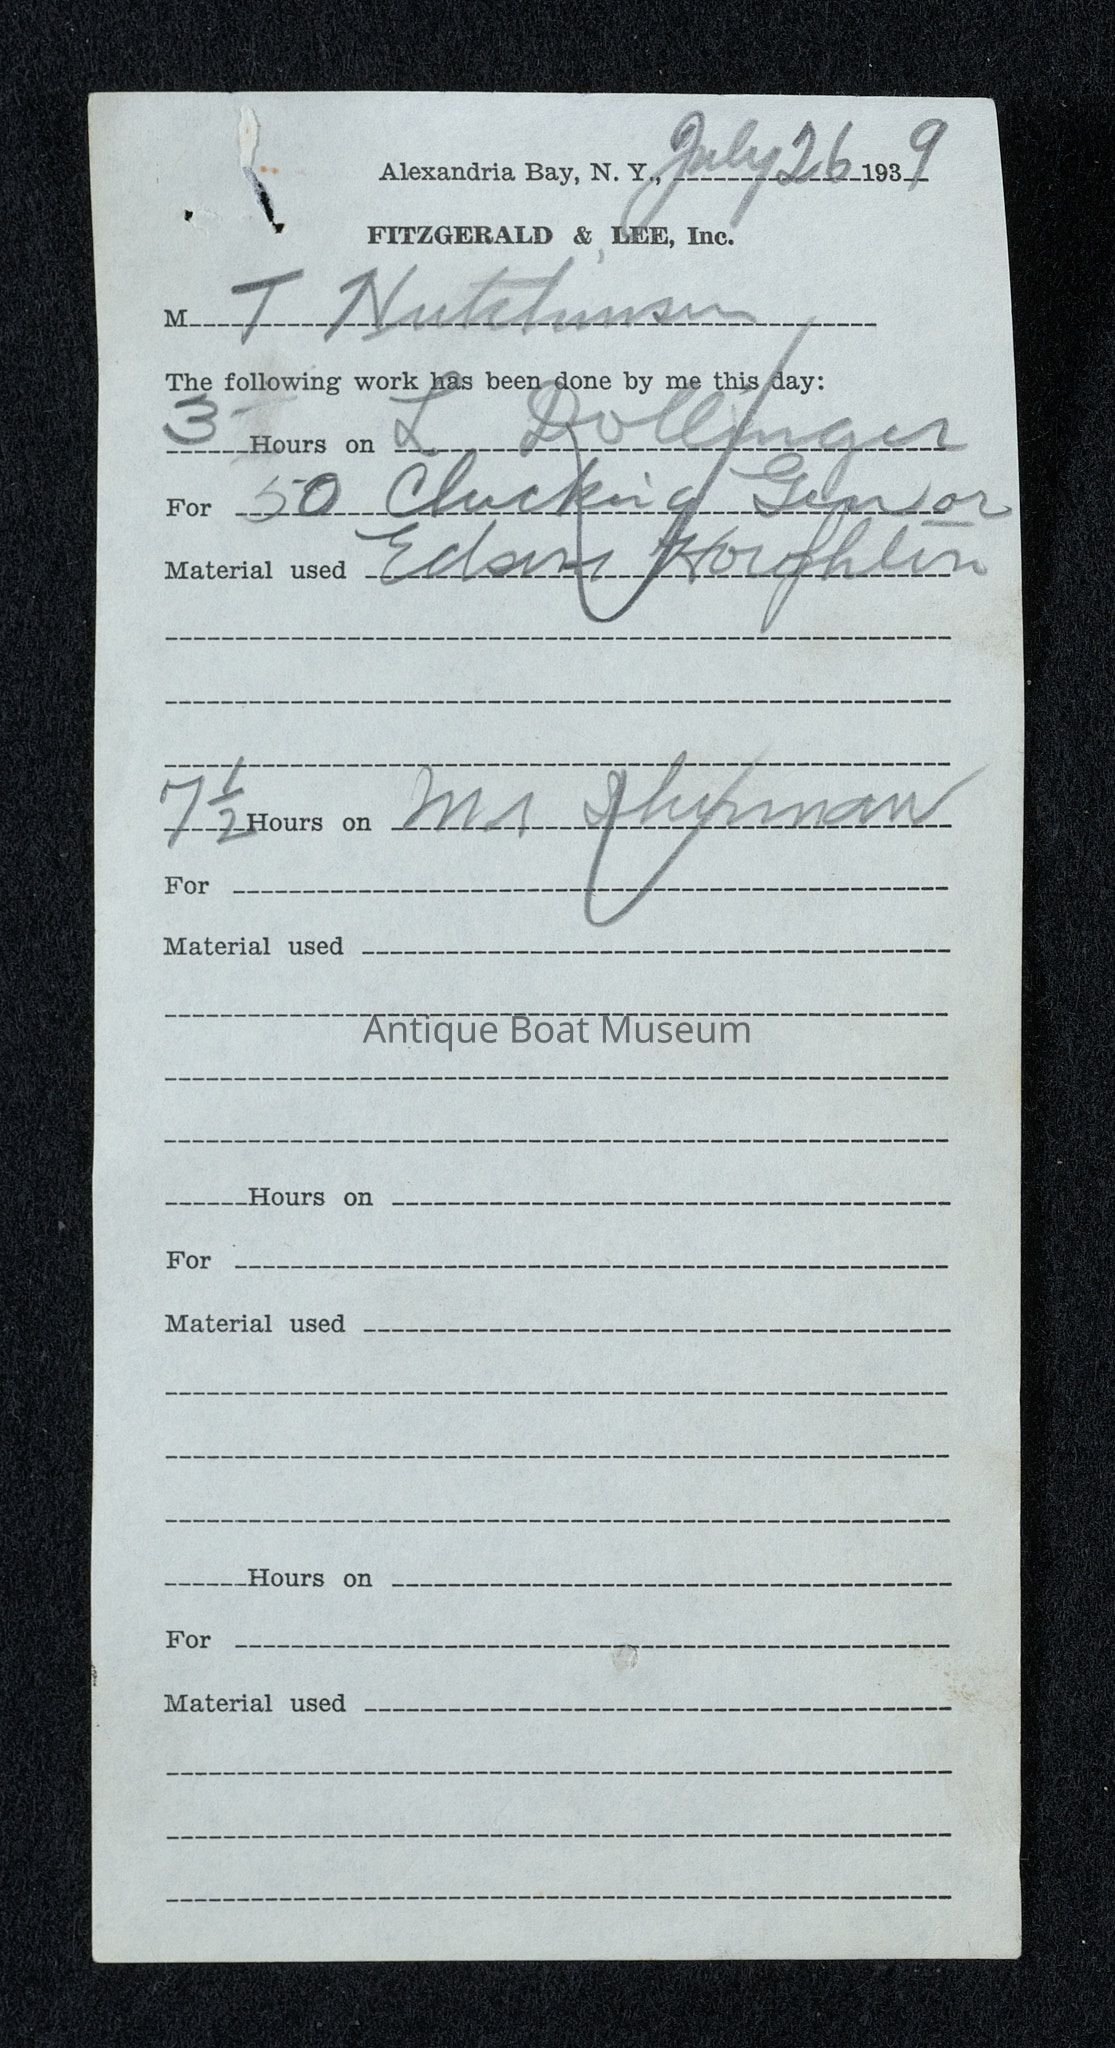 Alexandria Bay, N. Y., July 26 1939
FITZGERALD & LEE, Inc.
M T Hutchinson
The following work has been done by me this day:
3 Hours on L Dollinger
For 50 Checking
Material used Edson
7 1/2 Hours on
For
Material used
Antique Boat Museum
Hours on
For
Material used
Hours on
For
Material used